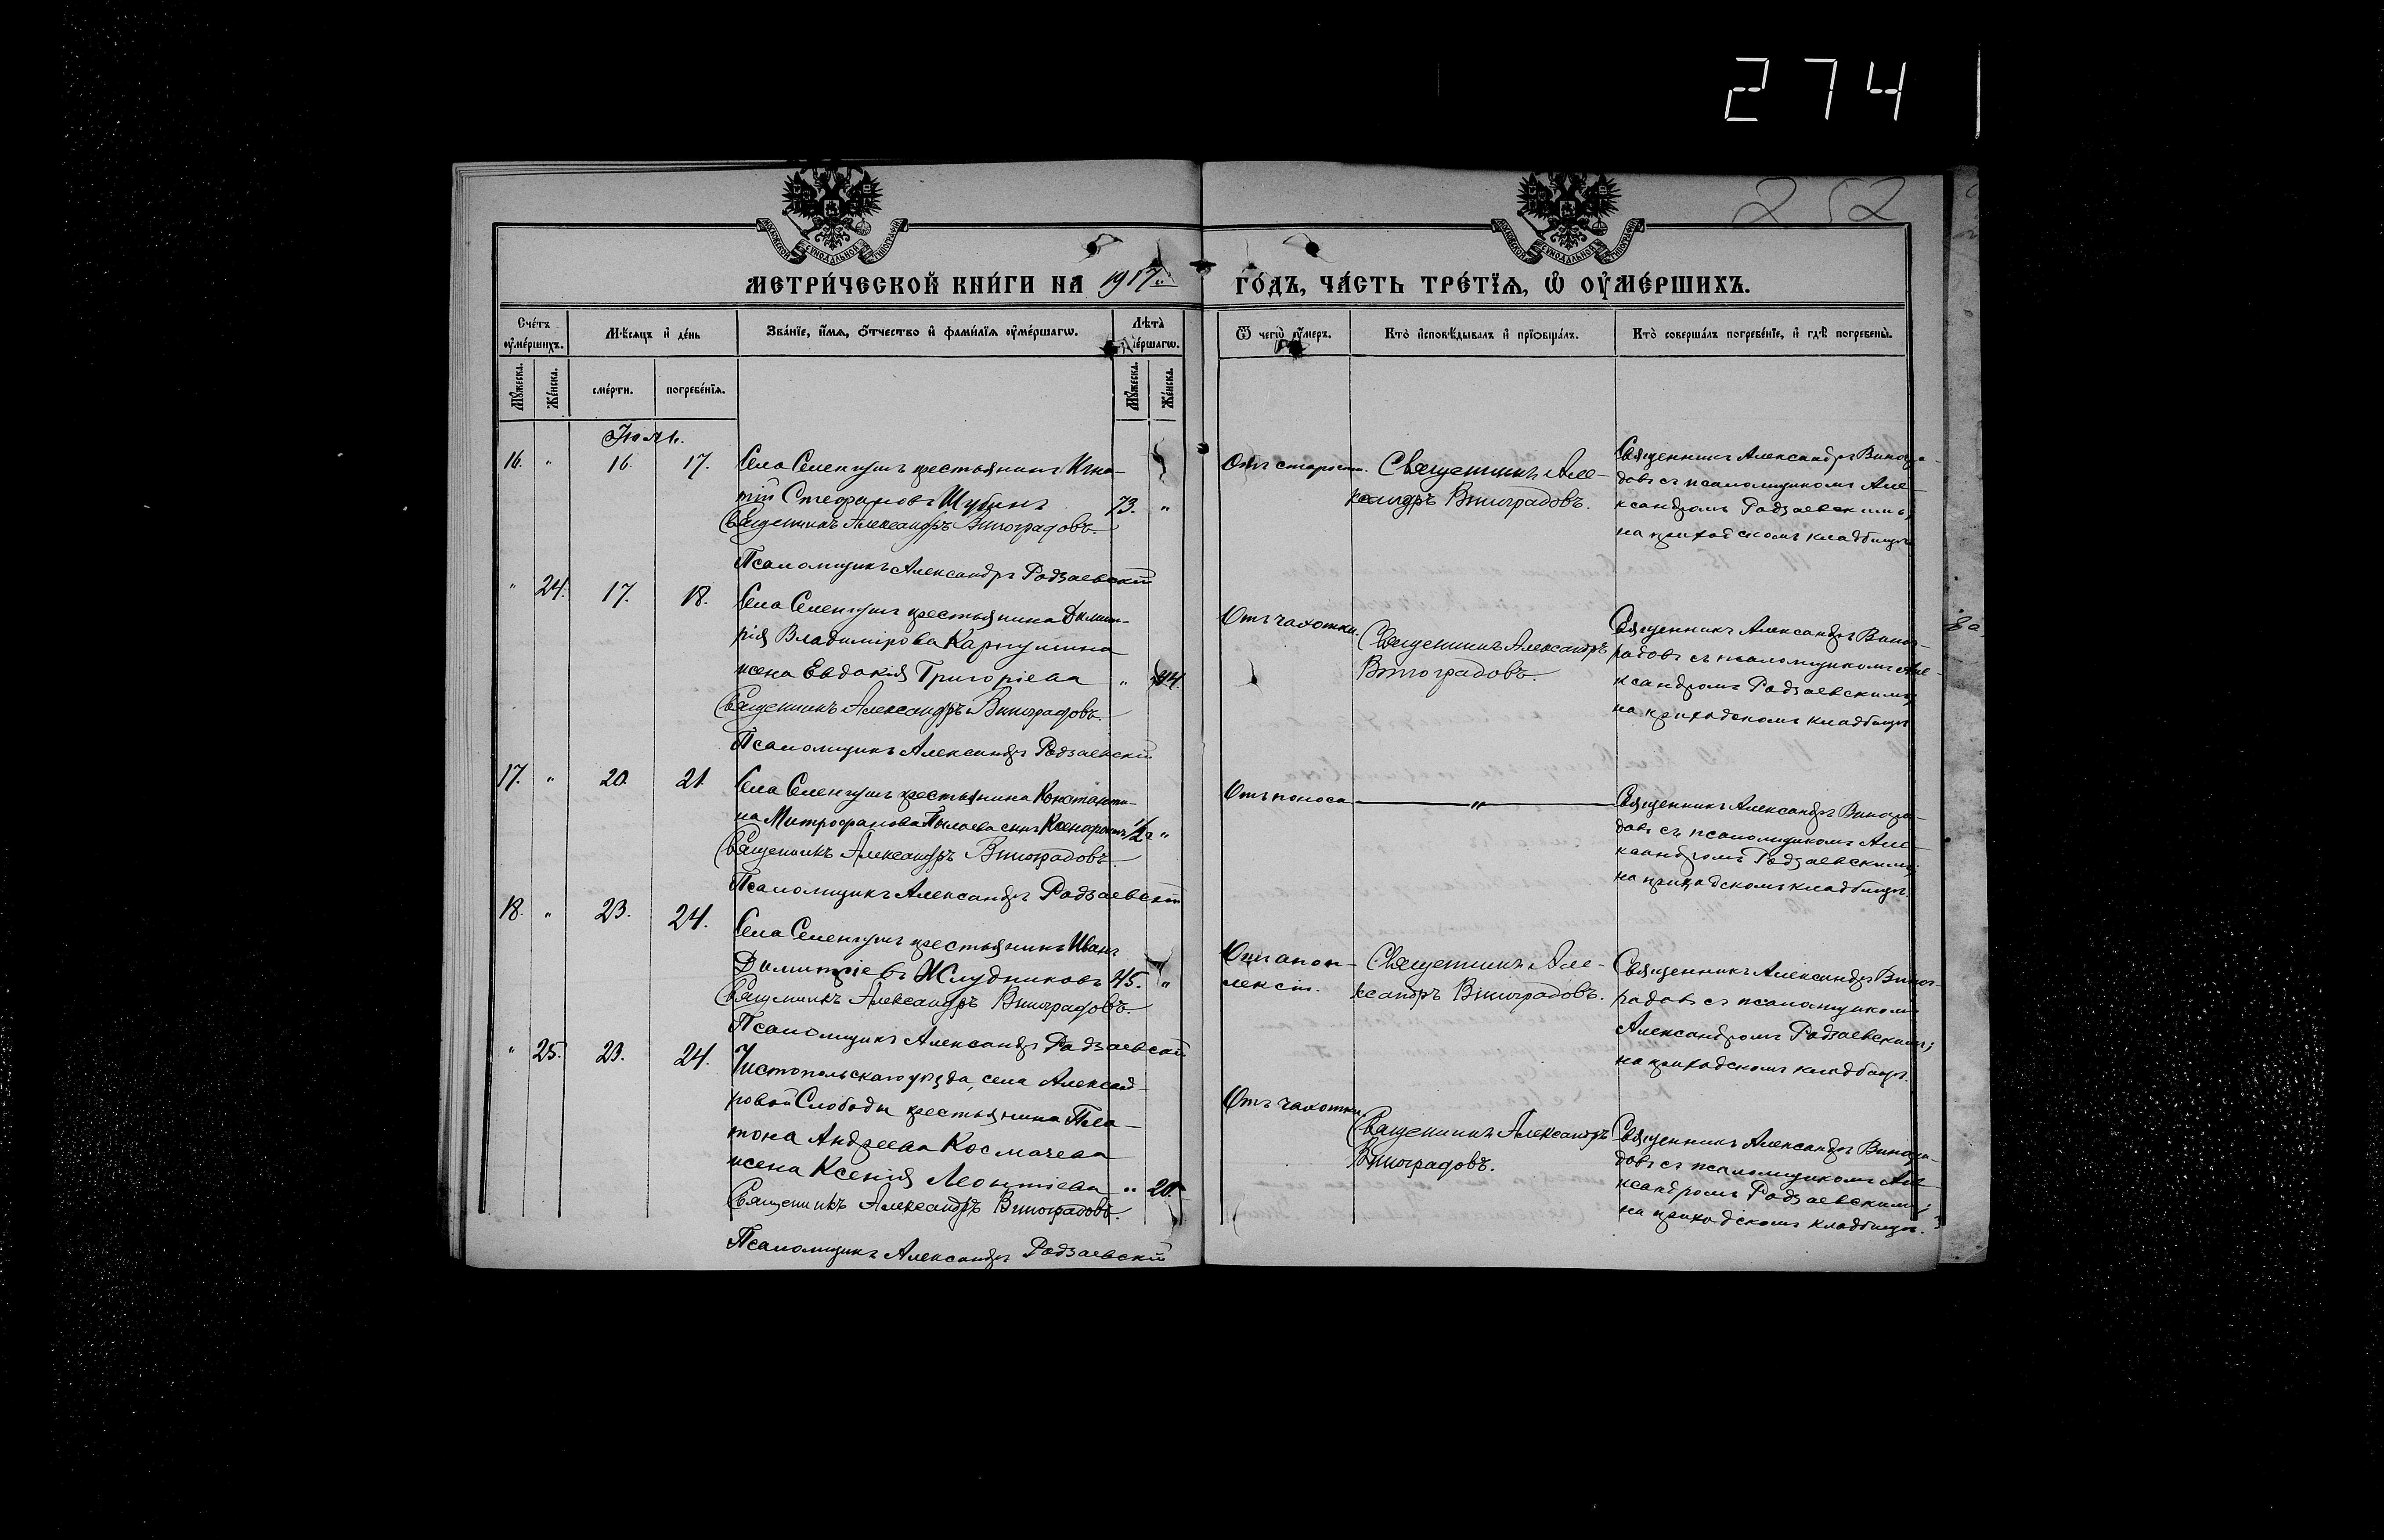 274
252
МОСКОВСКОЙ СѴНОДАЛЬНОЙ ТИПОГРАФІИ
МОСКОВСКОЙ СѴНОДАЛЬНОЙ ТИПОГРАФІИ
МЕТРИ́ЧЕСКОЙ КНИ́ГИ НА 1917 ГО́ДЪ, ЧА́СТЬ ТРЕ́ТЇѦ, Ѡ҆ ОУ҆МЕ́РШИХЪ.
Сче́тъ оу҆ме́ршихъ.
Мѣ́сѧцъ и҆ де́нь
Зва́нїе, и҆́мѧ, ѻ҆́тчество и҆ фами́лїѧ оу҆ме́ршагѡ.
Лѣ́та
ме́ршагѡ.
Ѿ чегѡ̀ оу҆́меръ.
Кто̀ и҆сповѣ́дывалъ и҆ прїѡбща́лъ.
Кто̀ соверша́лъ погребе́нїе, и҆ гдѣ̀ погребены̀.
Мꙋ́жеска.
Же́нска.
сме́рти.
погребе́нїѧ.
Мꙋ́жеска.
Же́нска.
Іюль.
16. " 16. 17. Села Селенгушъ крестьянинъ Игна-
тій Стефановъ Шубинъ 73. "
Священникъ Александръ Виноградовъ.
Псаломщикъ Александръ Радзаевскій
Отъ старости. Священникъ Але-
ксандръ Виноградовъ.
Священникъ Александръ Виногра-
довъ съ псаломщикомъ Але-
ксандромъ Радзаевскимъ;
на приходскомъ кладбищѣ
" 24. 17. 18. Села Селенгушъ крестьянина Димит-
рія Владимірова Каргулина
жена Евдокія Григоріева " 44.
Священникъ Александръ Виноградовъ.
Псаломщикъ Александръ Радзаевскій
Отъ чахотки. Священникъ Александръ
Виноградовъ.
Священникъ Александръ Виног-
радовъ съ псаломщикомъ Але-
ксандромъ Радзаевскимъ;
на приходскомъ кладбищѣ
17. " 20. 21. Села Селенгушъ крестьянина Константи-
на Митрофанова сынъ 1/2 г "
Священникъ Александръ Виноградовъ.
Псаломщикъ Александръ Радзаевскій
Отъ поноса "
Священникъ Александръ Виногра-
довъ съ псаломщикомъ Але-
ксандромъ Радзаевскимъ;
на приходскомъ кладбищѣ.
18. " 23. 24. Села Селенгушъ крестьянинъ Иванъ
Димитріевъ Жлудниковъ 45. "
Священникъ Александръ Виноградовъ.
Псаломщикъ Александръ Радзаевскій
Отъ апоп-
лексіи.
Священникъ Але-
ксандръ Виноградовъ.
Священникъ Александръ Виног-
радовъ съ псаломщикомъ
Александромъ Радзаевскимъ;
на приходскомъ кладбищѣ.
" 25. 23. 24. Чистопольскаго уѣзда, села
Слободы крестьянина Пла-
тона Андреева Космачева
жена Ксенія Леонтіева " 20.
Священникъ Александръ Виноградовъ.
Псаломщикъ Александръ Радзаевскій
Отъ чахотки.
Священникъ Александръ
Виноградовъ.
Священникъ Александръ Виногра-
довъ съ псаломщикомъ Але-
ксандромъ Радзаевскимъ;
на приходскомъ кладбищѣ.